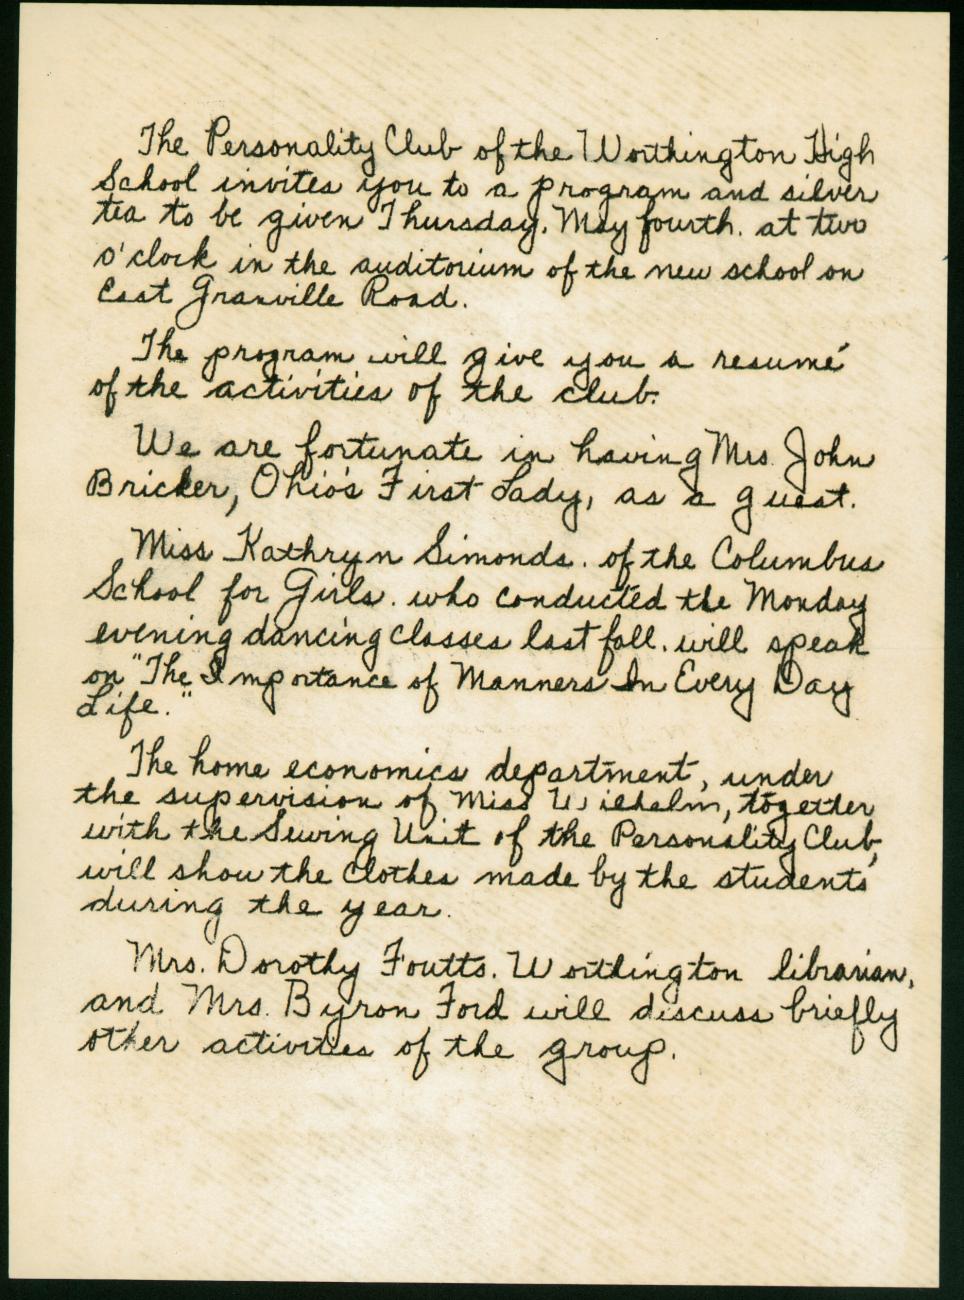 The Personality Club of the Worthington High
School invites you to a program and silver
tea to be given Thursday, May fourth. at two
o'clock in the auditorium of the new school on
East Granville Road.
The program will give you a resumé
of the activities of the club.
We are fortunate in having Mrs. John
Bricker, Ohio's First Lady, as a guest.
Miss Kathryn Simonds. of the Columbus
School for Girls. who conducted the Monday
evening dancing classes last fall. will speak
on "The Importance of Manners In Every Day
Life."
The home economics department, under
the supervision of Miss Wilhelm, together
with the Sewing Unit of the Personality Club,
will show the clothes made by the students
during the year.
Mrs. Dorothy Foutts. Worthington librarian,
and Mrs. Byron Ford will discuss briefly
other activities of the group.